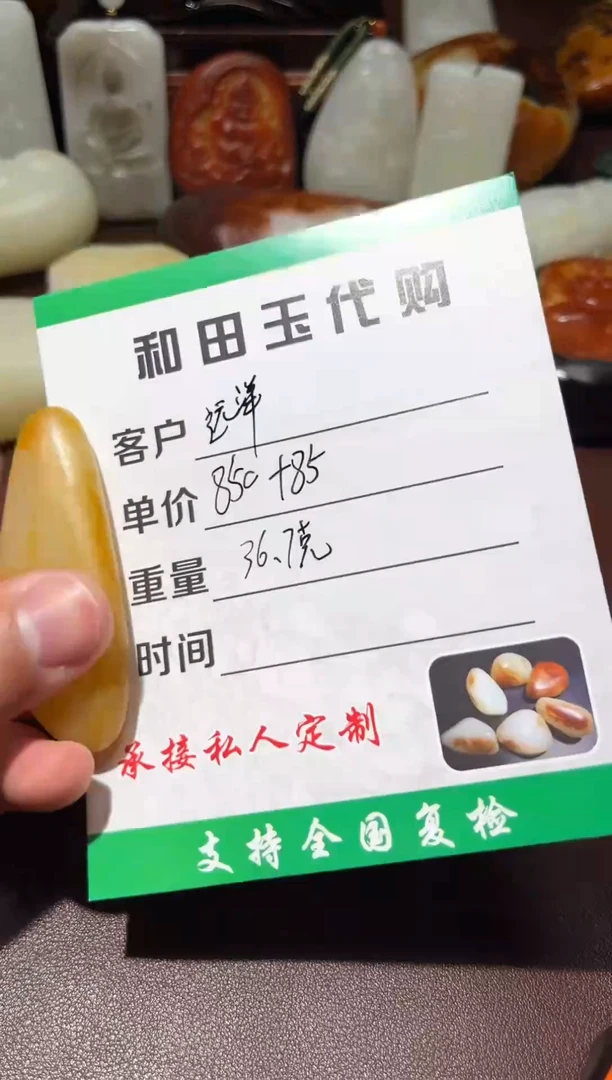 和田玉代购
客户 远洋
单价 850+85
重量 36.7克
时间
承接私人定制
支持全国复检